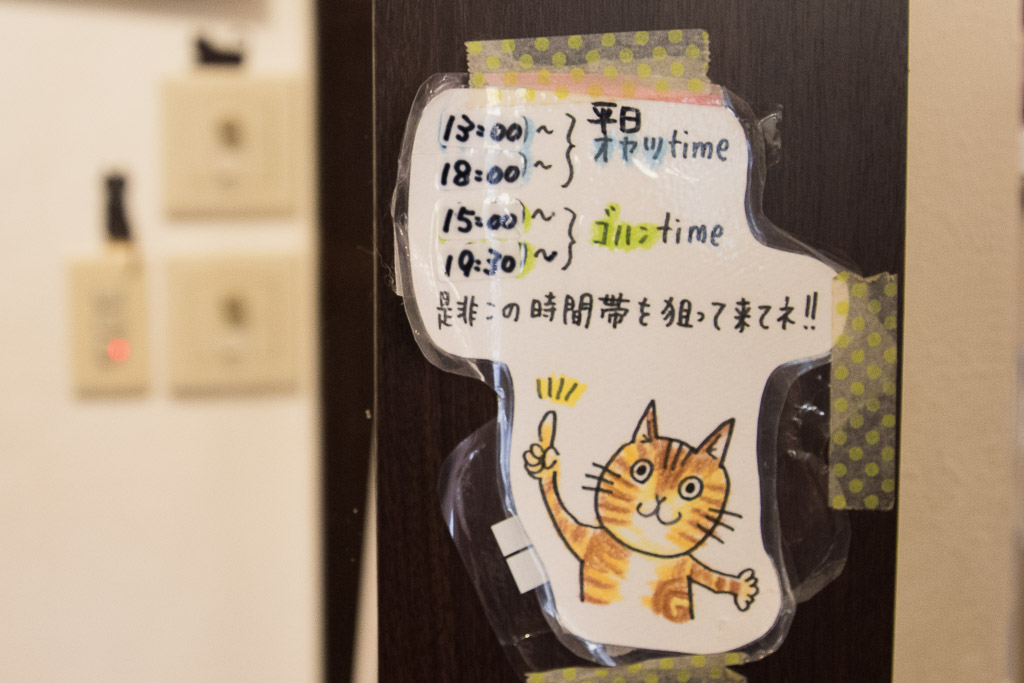 13:00~
18:00~
平日
オヤツtime
15:00~
19:30~
ゴハンtime
是非この時間帯を狙って来てネ!!